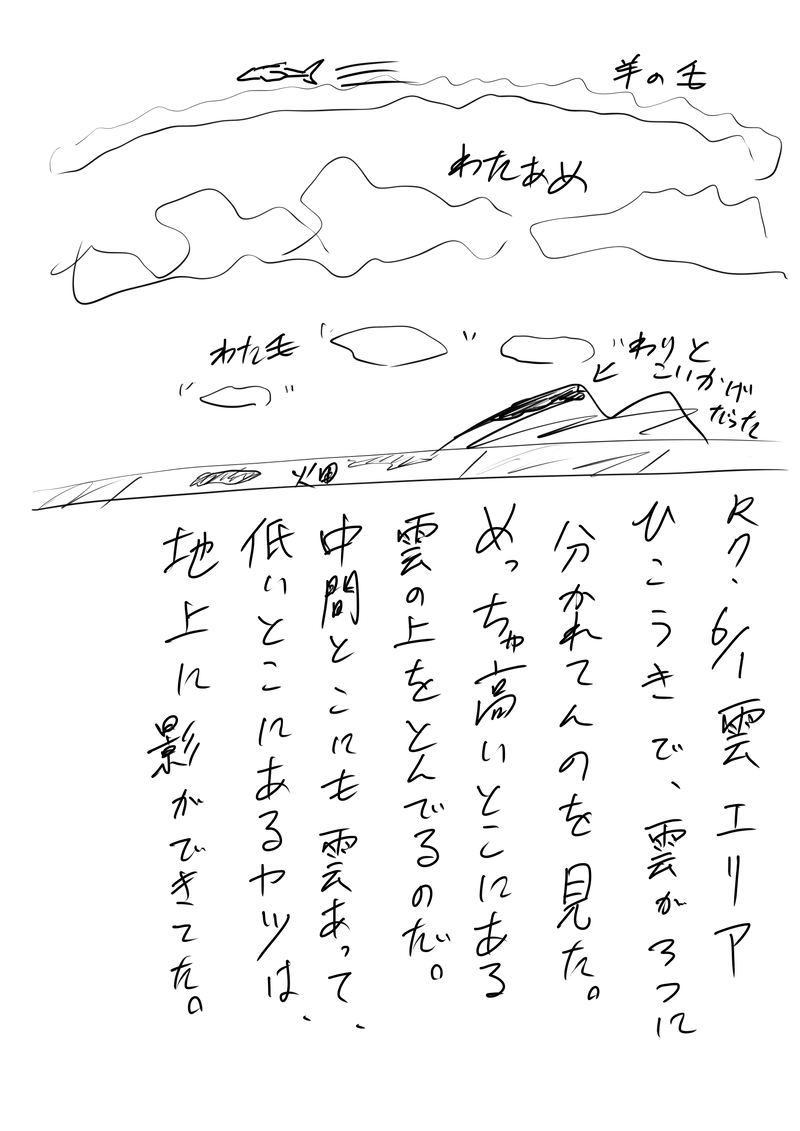 羊の毛
わたあめ
わた毛
わりと
こいかげ
だった
火田
Rク. 6/1 雲エリア
ひこうきで、雲が3つに
分かれてんのを見た。
めっちゃ高いとこにある
雲の上をとんでるのだ。
中間とこにも雲あって、
低いとこにあるヤツは、
地上に影ができてた。